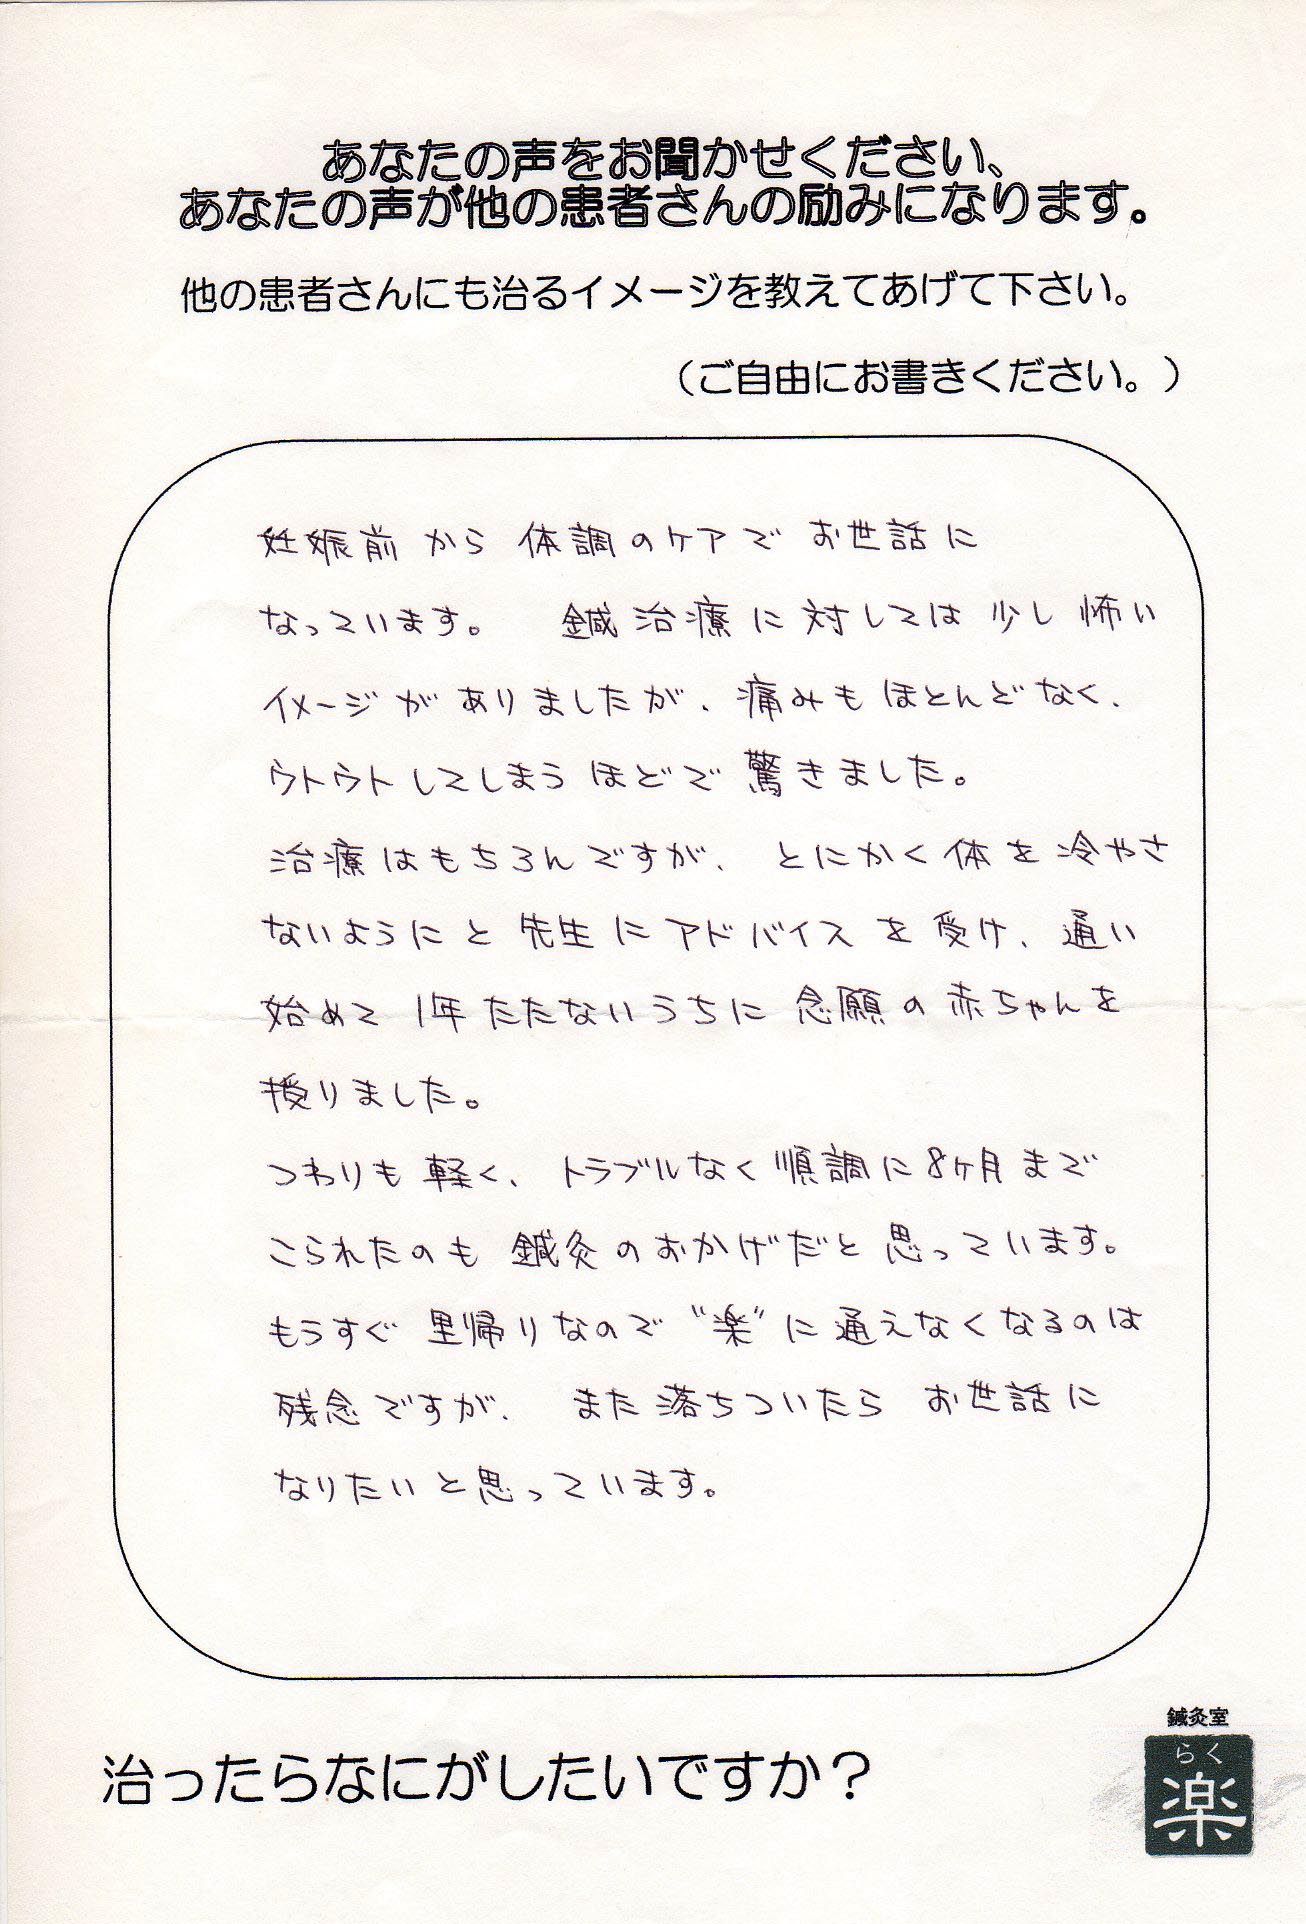 あなたの声をお聞かせください、
あなたの声が他の患者さんの励みになります。
他の患者さんにも治るイメージを教えてあげて下さい。
（ご自由にお書きください。）
妊娠前から体調のケアでお世話に
なっています。 鍼治療に対しては少し怖い
イメージがありましたが、痛みもほとんどなく、
ウトウトしてしまうほどで驚きました。
治療はもちろんですが、とにかく体を冷やさ
ないようにと先生にアドバイスを受け、通い
始めて1年たたないうちに念願の赤ちゃんを
授りました。
つわりも軽く、トラブルなく順調に8ヶ月まで
こられたのも鍼灸のおかげだと思っています。
もうすぐ里帰りなので"楽"に通えなくなるのは
残念ですが、また落ちついたらお世話に
なりたいと思っています。
鍼灸室
らく
楽
治ったらなにがしたいですか？